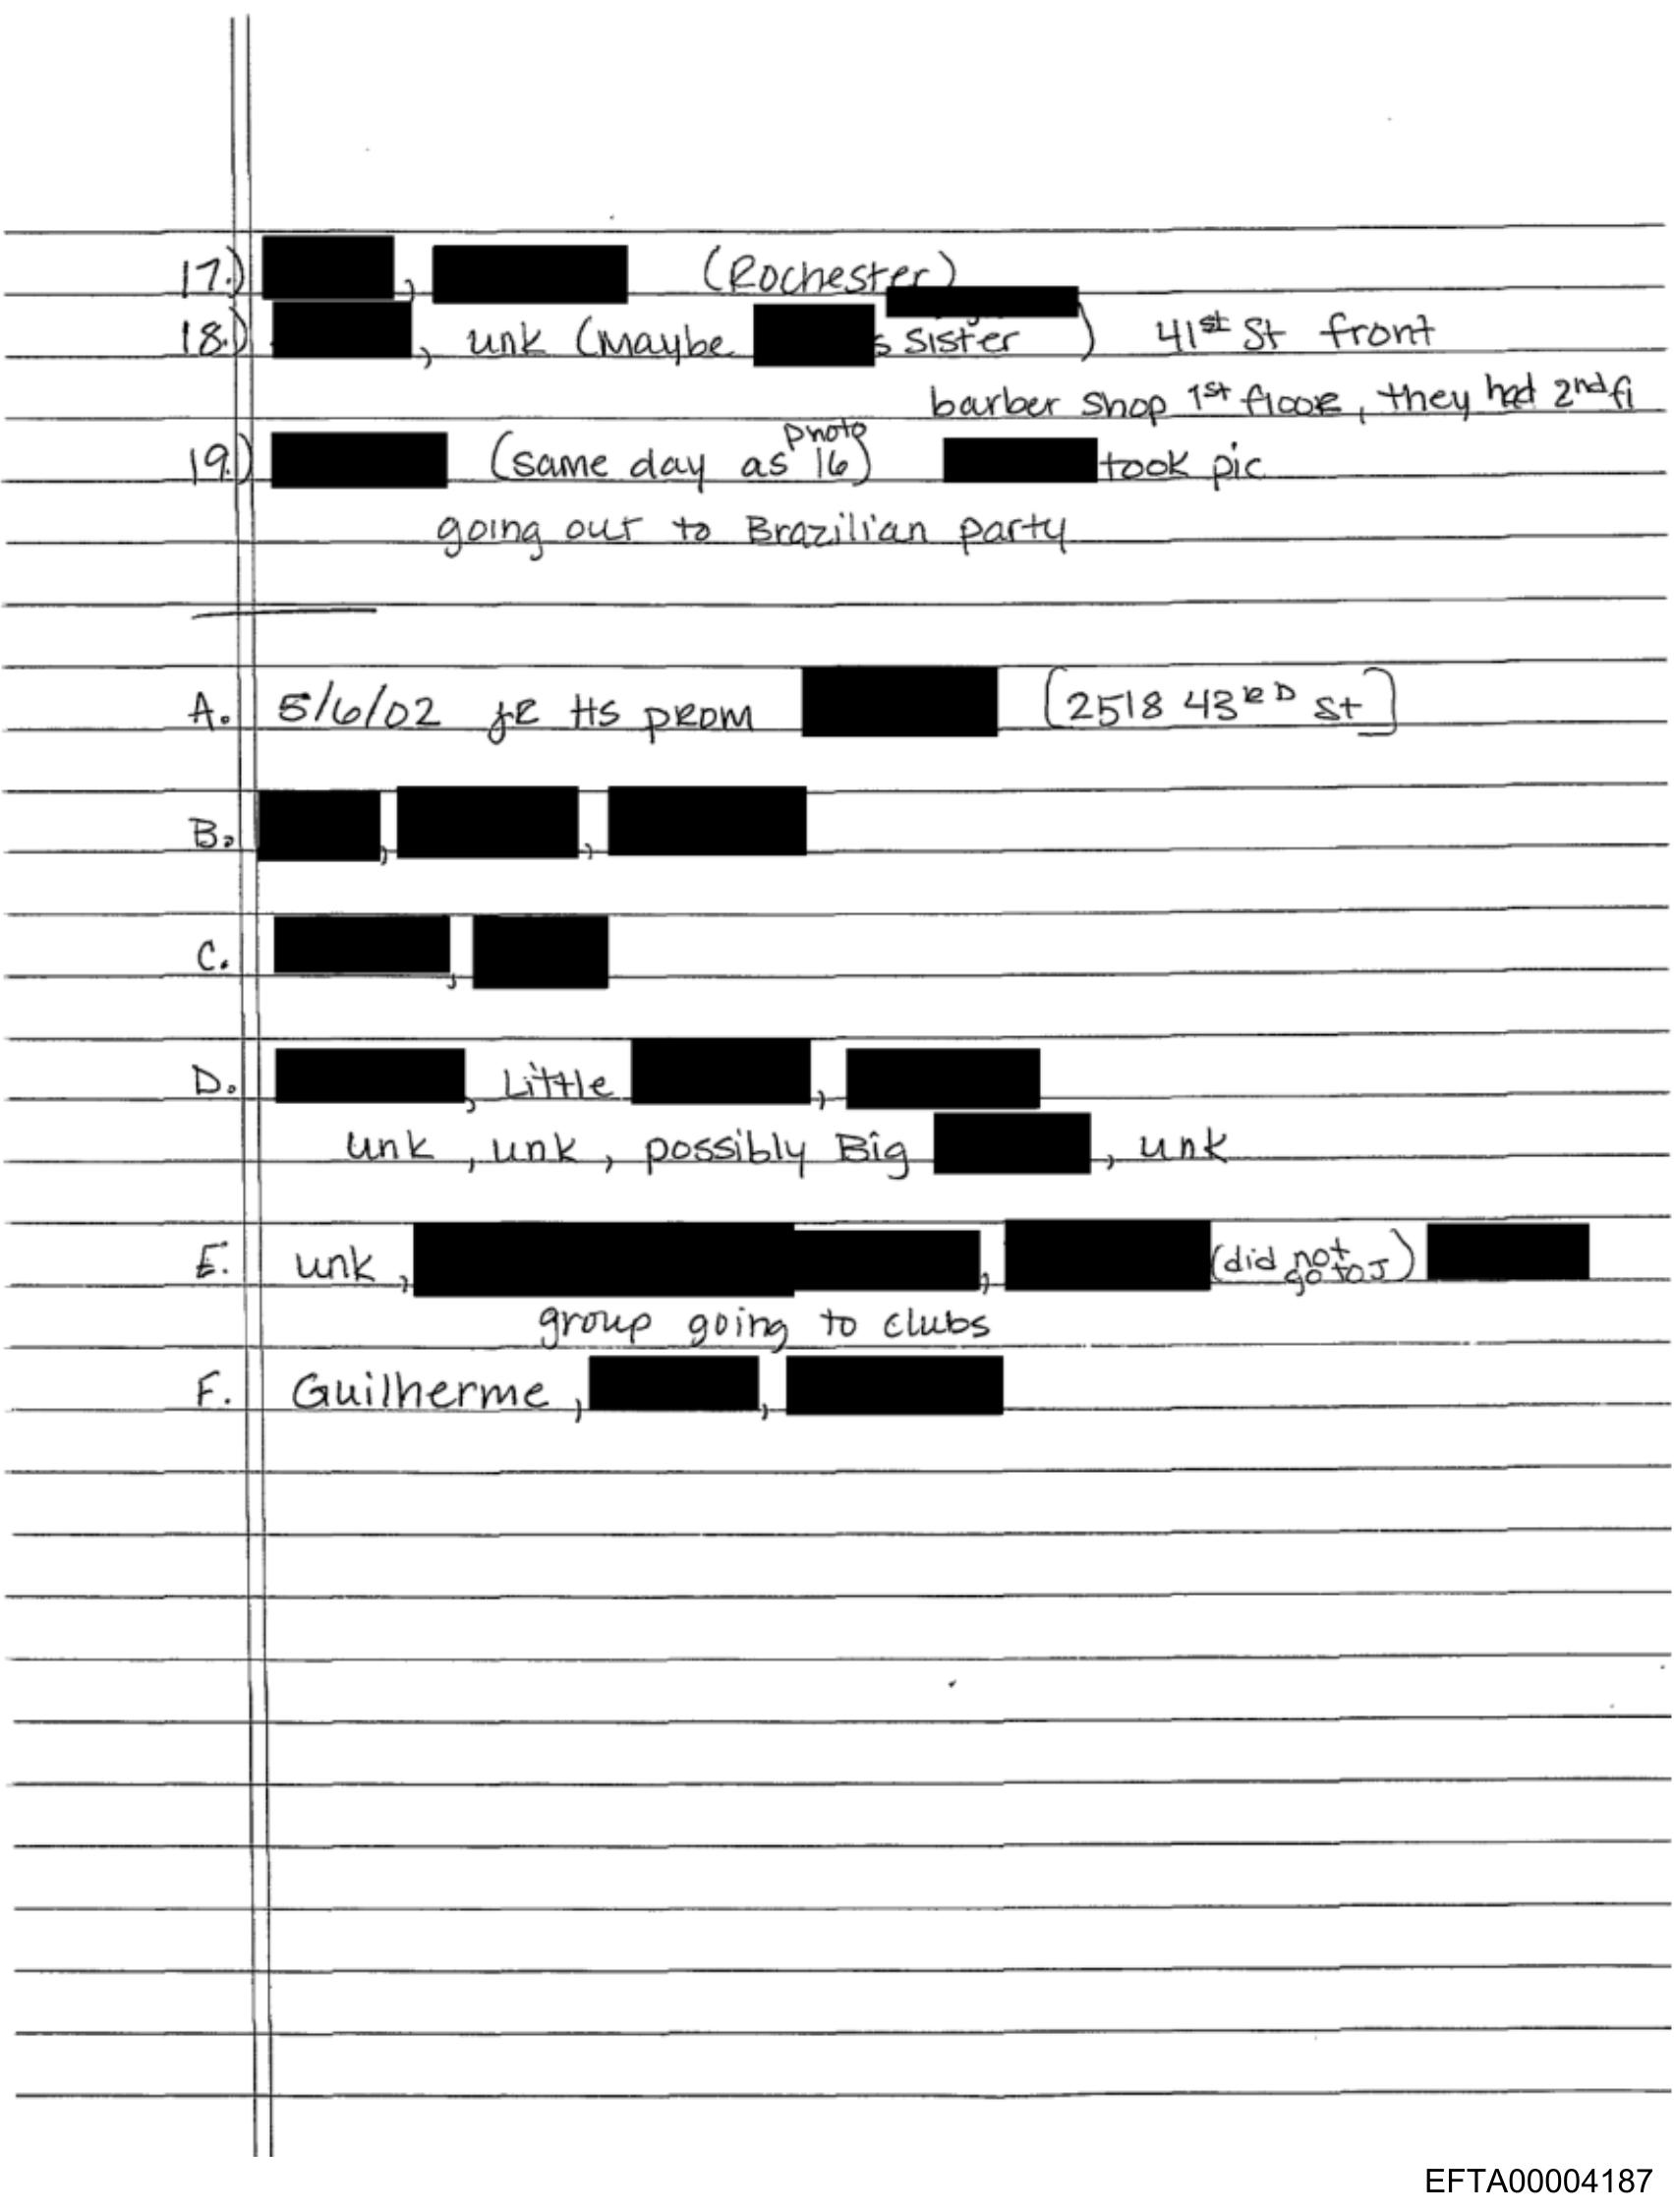 17.) , (Rochester)
18.) , unk (maybe s sister ) 41st St front
barber shop 1st floor, they had 2nd fl
19.) (same day as photo 16) took pic
going out to Brazilian party
A. 5/6/02 JR HS PROM [2518 43RD St]
B. , ,
C. ,
D. , Little ,
unk , unk , possibly Big , unk
E. unk , , (did not go to J)
group going to clubs
F. Guilherme , ,
EFTA00004187